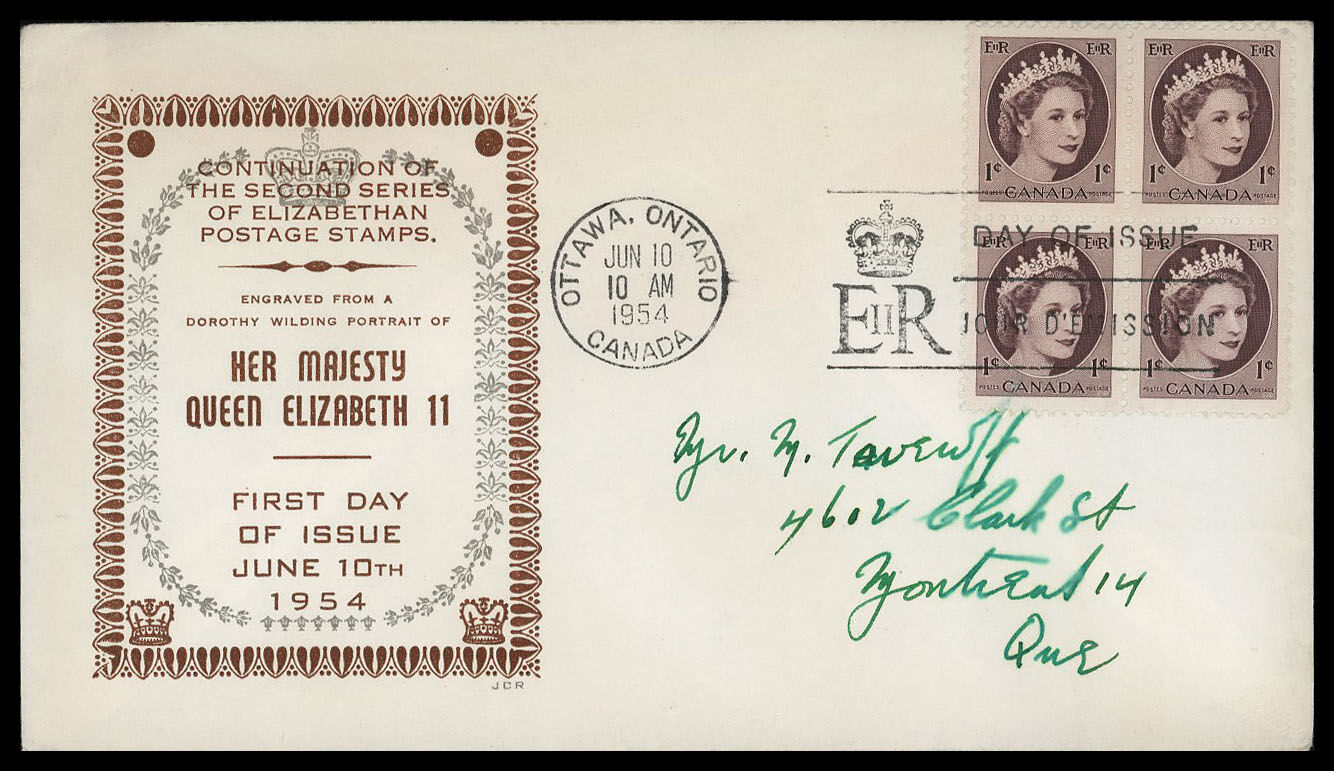 CONTINUATION OF
THE SECOND SERIES
OF ELIZABETHAN
POSTAGE STAMPS.
ENGRAVED FROM A
DOROTHY WILDING PORTRAIT OF
HER MAJESTY
QUEEN ELIZABETH 11
FIRST DAY
OF ISSUE
JUNE 10TH
1954
JCR
OTTAWA, ONTARIO
JUN 10
10 AM
1954
CANADA
EIIR
DAY OF ISSUE
JOUR D'EMISSION
EIIR EIIR
1¢ 1¢
POSTES CANADA POSTAGE
EIIR EIIR
1¢ 1¢
POSTES CANADA POSTAGE
EIIR EIIR
1¢ 1¢
POSTES CANADA POSTAGE
EIIR EIIR
1¢ 1¢
POSTES CANADA POSTAGE
Mr. M.
4602 Clark St
Montreal 14
Que